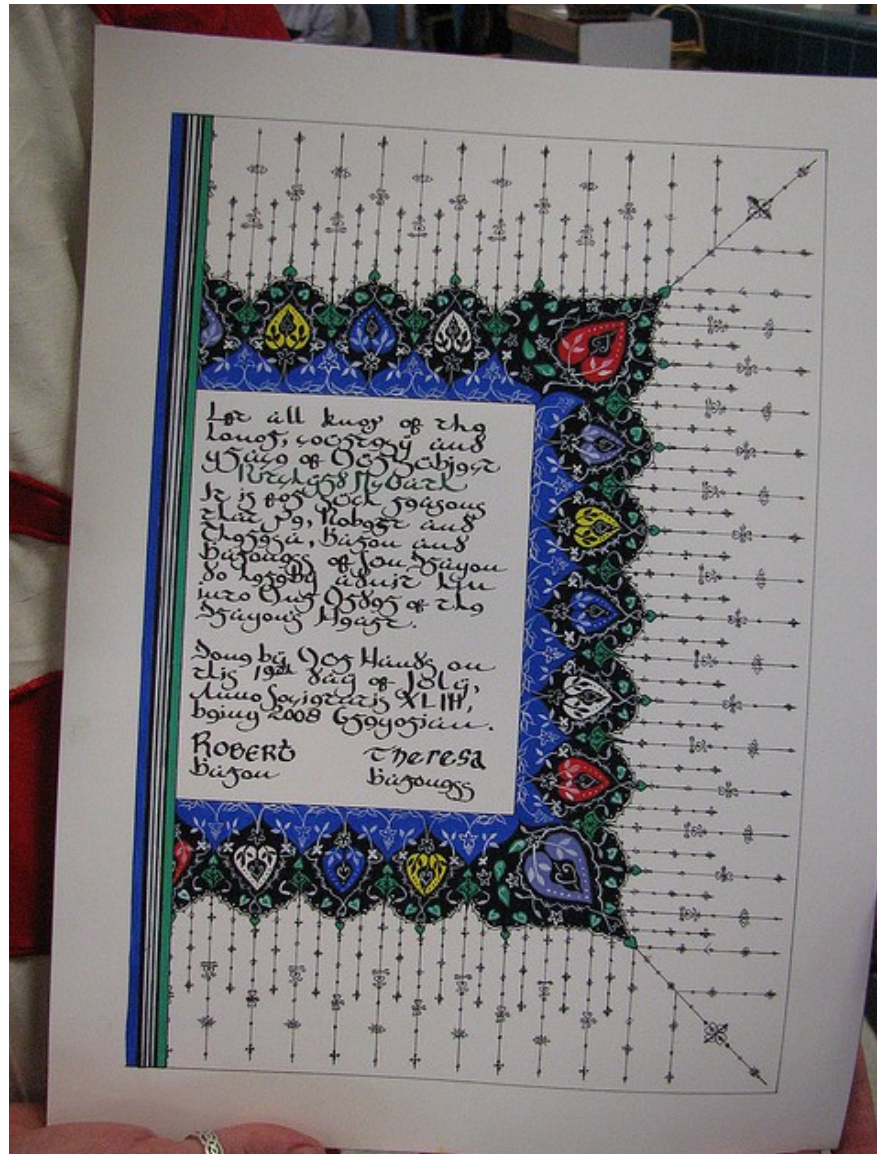 Let all know of the
long, courtesy and
of Our Subject
It is for such reasons
that We, Robert and
Theresa, Baron and
Baroness of Jon Dragon
do hereby admit him
into Our Order of the
Dragon's Heart.
Done by Our Hands on
this 19th day of July,
Anno Societatis XLIII,
being 2008 Gregorian.
Robert Theresa
Baron Baroness